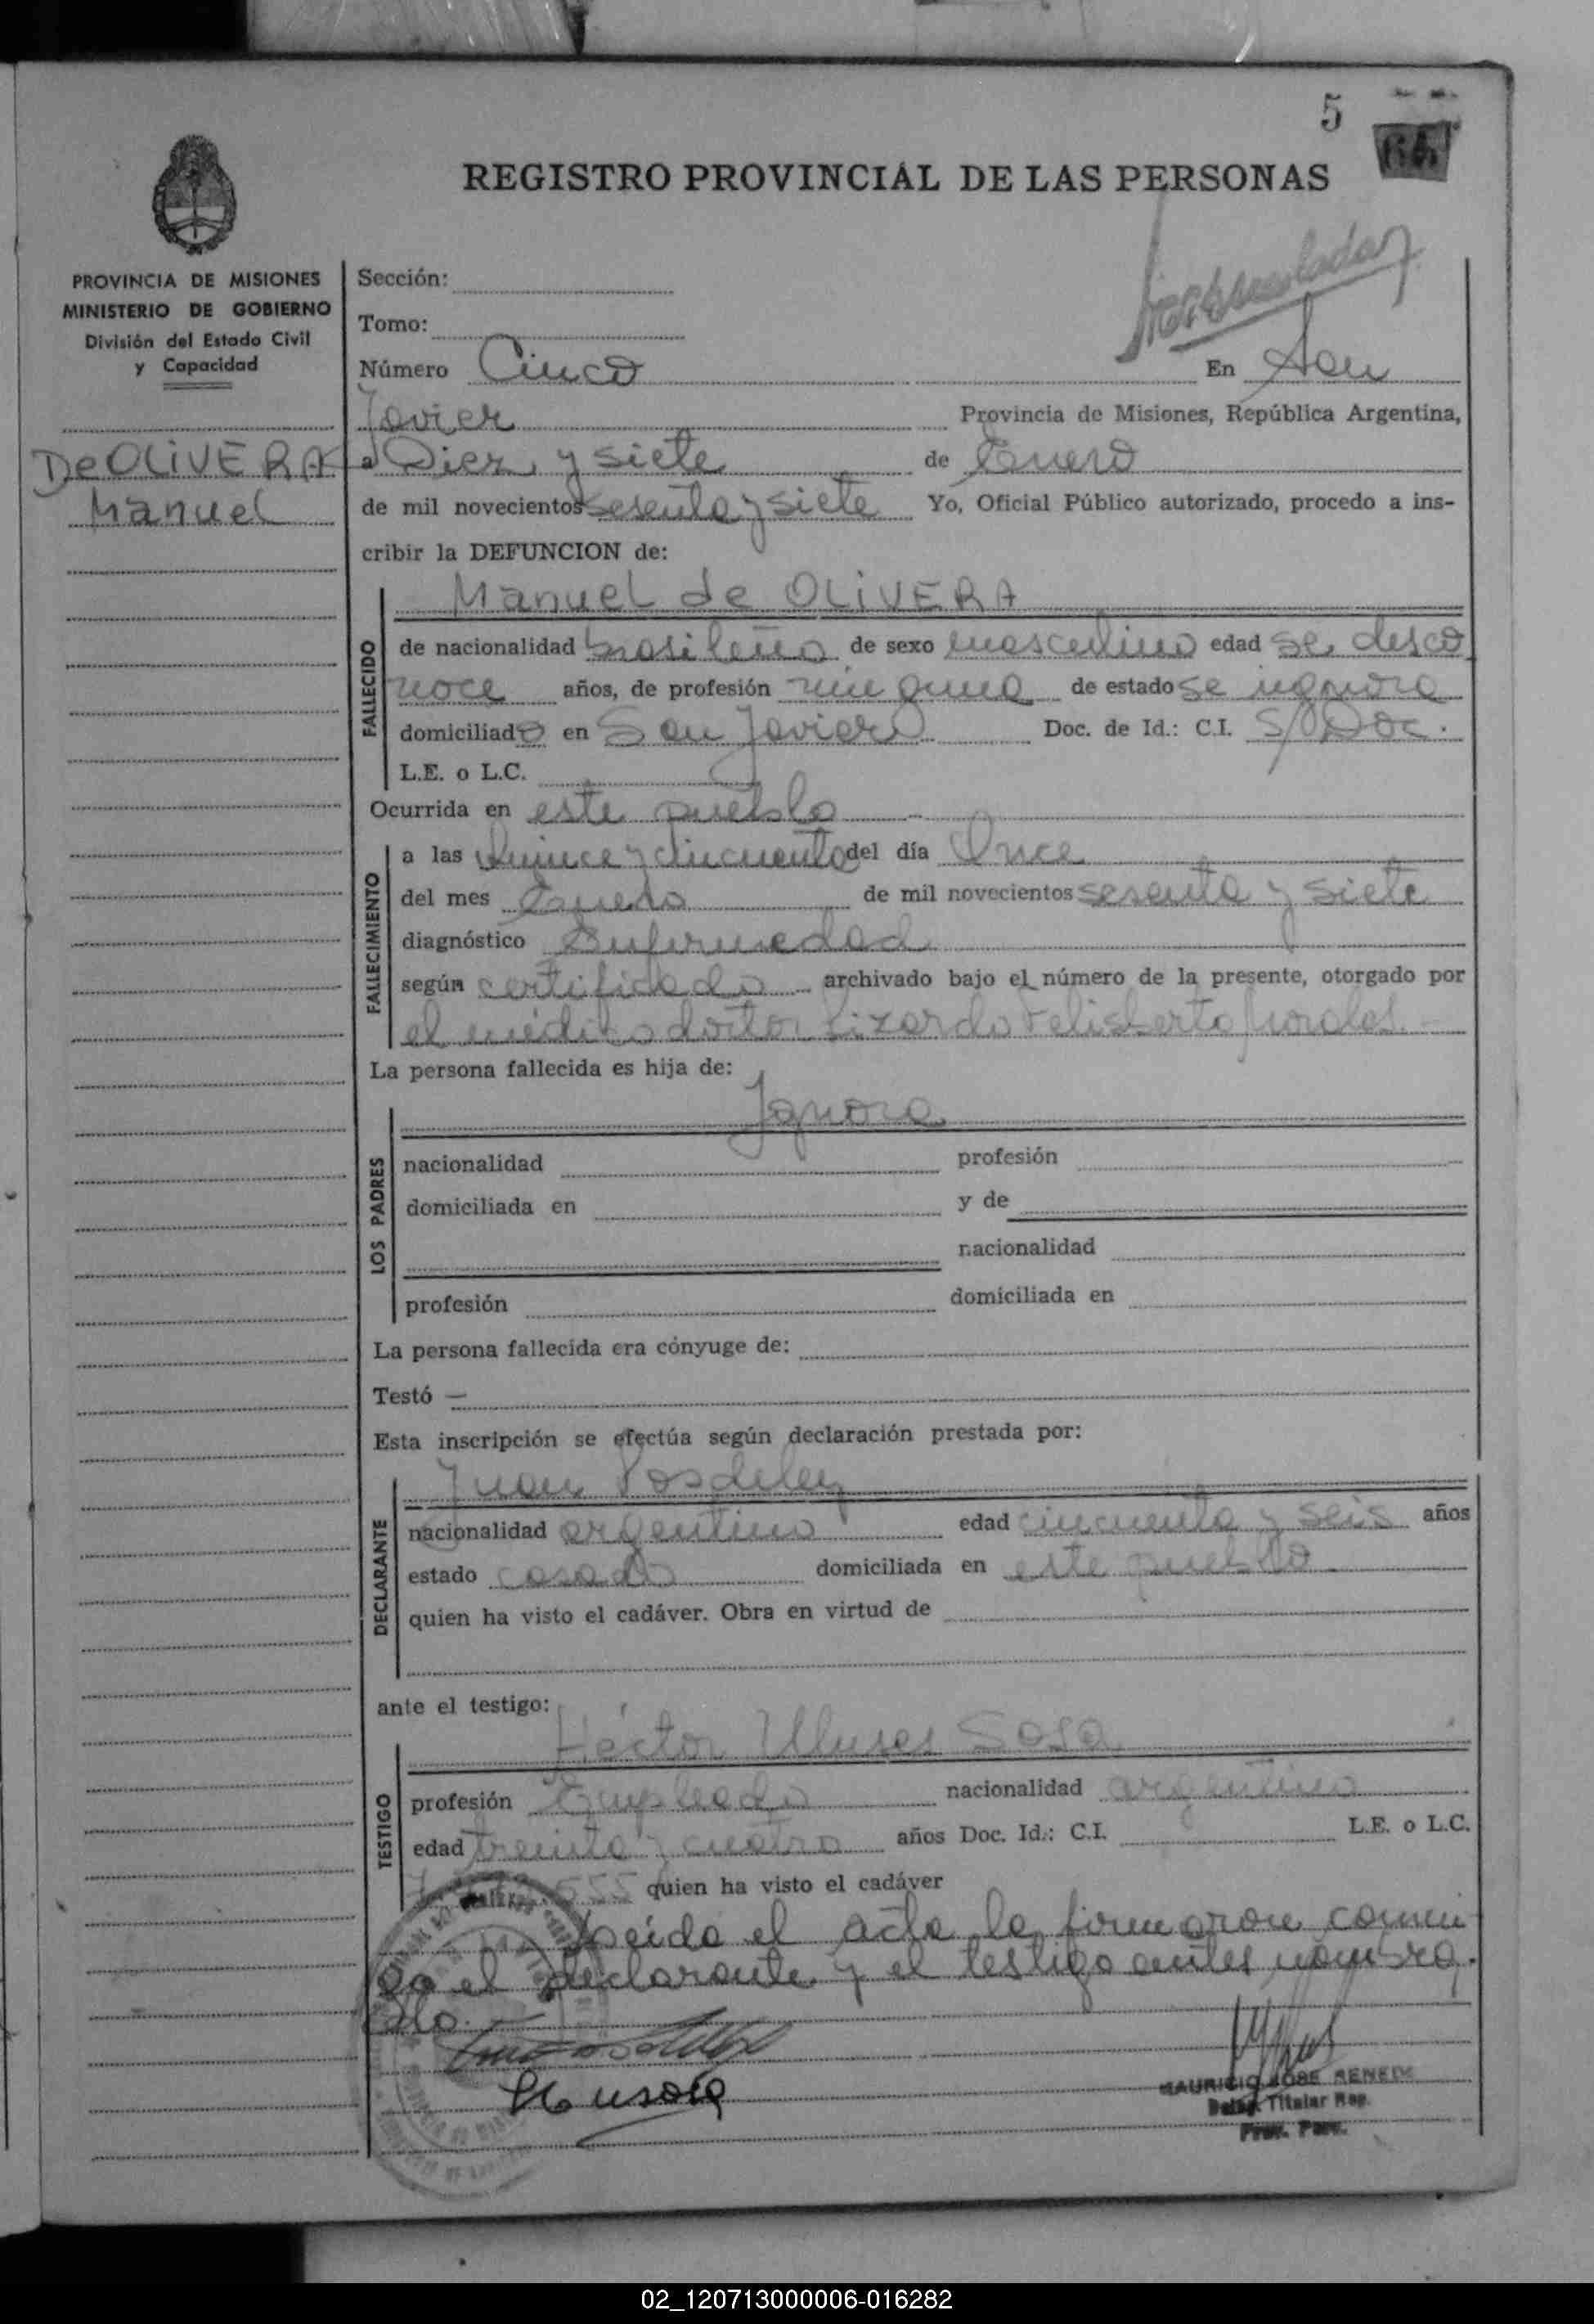 5
64
REGISTRO PROVINCIAL DE LAS PERSONAS
PROVINCIA DE MISIONES
MINISTERIO DE GOBIERNO
División del Estado Civil
y Capacidad
De OLIVERA
Manuel
Sección:
Tomo:
Número Cinco En San
Javier Provincia de Misiones, República Argentina,
a Diez y siete de Enero
de mil novecientos sesenta y siete Yo, Oficial Público autorizado, procedo a ins-
cribir la DEFUNCION de:
Manuel de OLIVERA
FALLECIDO
de nacionalidad brasileño de sexo masculino edad se desco
noce años, de profesión ninguna de estado se ignora
domiciliado en San Javier Doc. de Id.: C.I. S/Doc.
L.E. o L.C.
Ocurrida en este pueblo
FALLECIMIENTO
a las quince y cincuenta del día Once
del mes Enero de mil novecientos sesenta y siete
diagnóstico Enfermedad
según certificado archivado bajo el número de la presente, otorgado por
el médico doctor Lizardo Felisberto Morales
La persona fallecida es hija de:
Ignora
LOS PADRES
nacionalidad profesión
domiciliada en y de
nacionalidad
profesión domiciliada en
La persona fallecida era cónyuge de:
Testó —
Esta inscripción se efectúa según declaración prestada por:
Juan
DECLARANTE
nacionalidad argentino edad cincuenta y seis años
estado casado domiciliada en este pueblo
quien ha visto el cadáver. Obra en virtud de
ante el testigo:
Héctor Ulises Sosa
TESTIGO
profesión Empleado nacionalidad argentino
edad treinta y cuatro años Doc. Id.: C.I. L.E. o L.C.
555 quien ha visto el cadáver
Leída el acta la firmaron conmi
go el declarante y el testigo antes nombra.
do.
MAURICIO JOSE
Titular Rep.
02_120713000006-016282